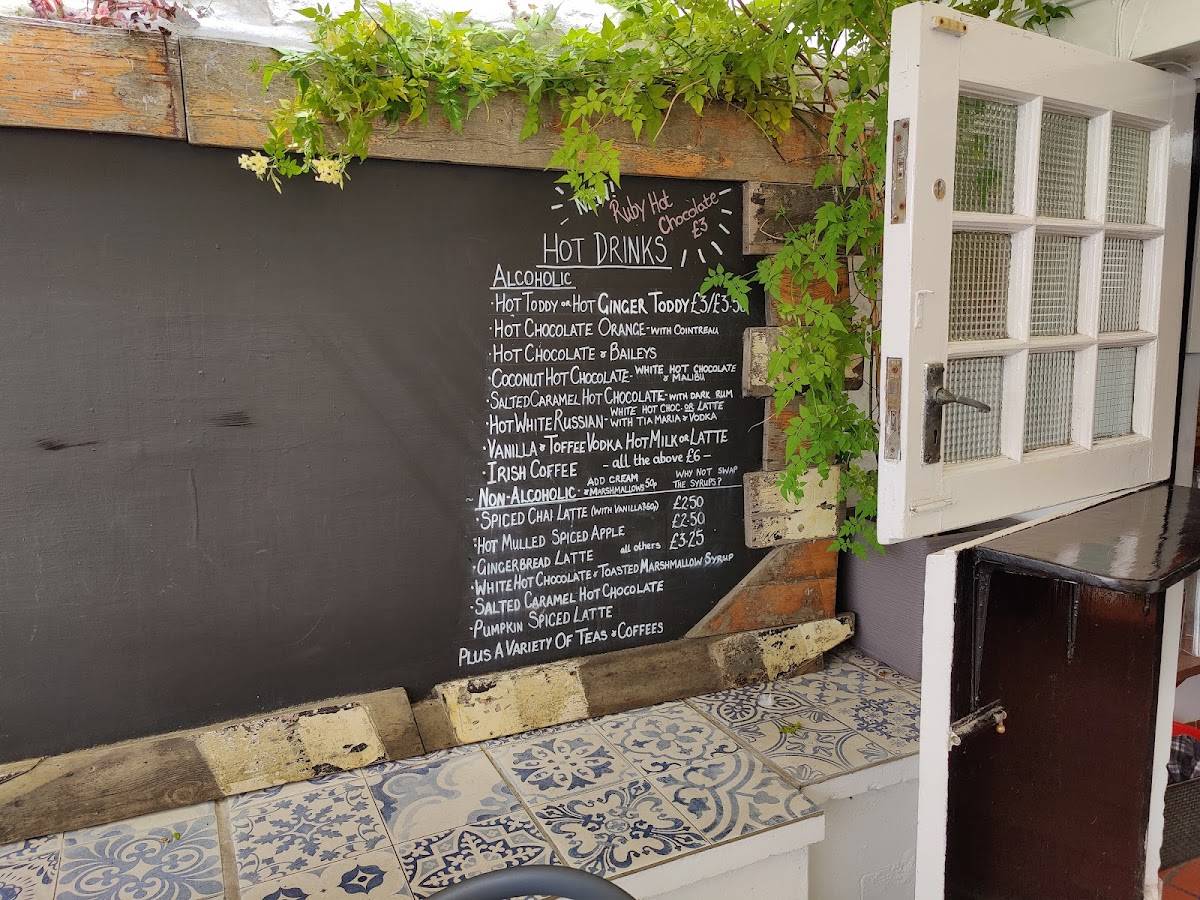 NEW!
Ruby Hot
Chocolate
£3
HOT DRINKS
ALCOHOLIC
· HOT TODDY OR HOT GINGER TODDY £3/£3.50
· HOT CHOCOLATE ORANGE - WITH COINTREAU
· HOT CHOCOLATE & BAILEYS
· COCONUT HOT CHOCOLATE - WHITE HOT CHOCOLATE & MALIBU
· SALTED CARAMEL HOT CHOCOLATE - WITH DARK RUM
· HOT WHITE RUSSIAN - WHITE HOT CHOC. OR LATTE WITH TIA MARIA & VODKA
· VANILLA & TOFFEE VODKA HOT MILK OR LATTE
· IRISH COFFEE - all the above £6 -
~ NON-ALCOHOLIC - ADD CREAM & MARSHMALLOWS 50p WHY NOT SWAP THE SYRUPS?
· SPICED CHAI LATTE (WITH VANILLA 50p) £2.50
· HOT MULLED SPICED APPLE £2.50
· GINGERBREAD LATTE all others £3.25
· WHITE HOT CHOCOLATE & TOASTED MARSHMALLOW SYRUP
· SALTED CARAMEL HOT CHOCOLATE
· PUMPKIN SPICED LATTE
PLUS A VARIETY OF TEAS & COFFEES